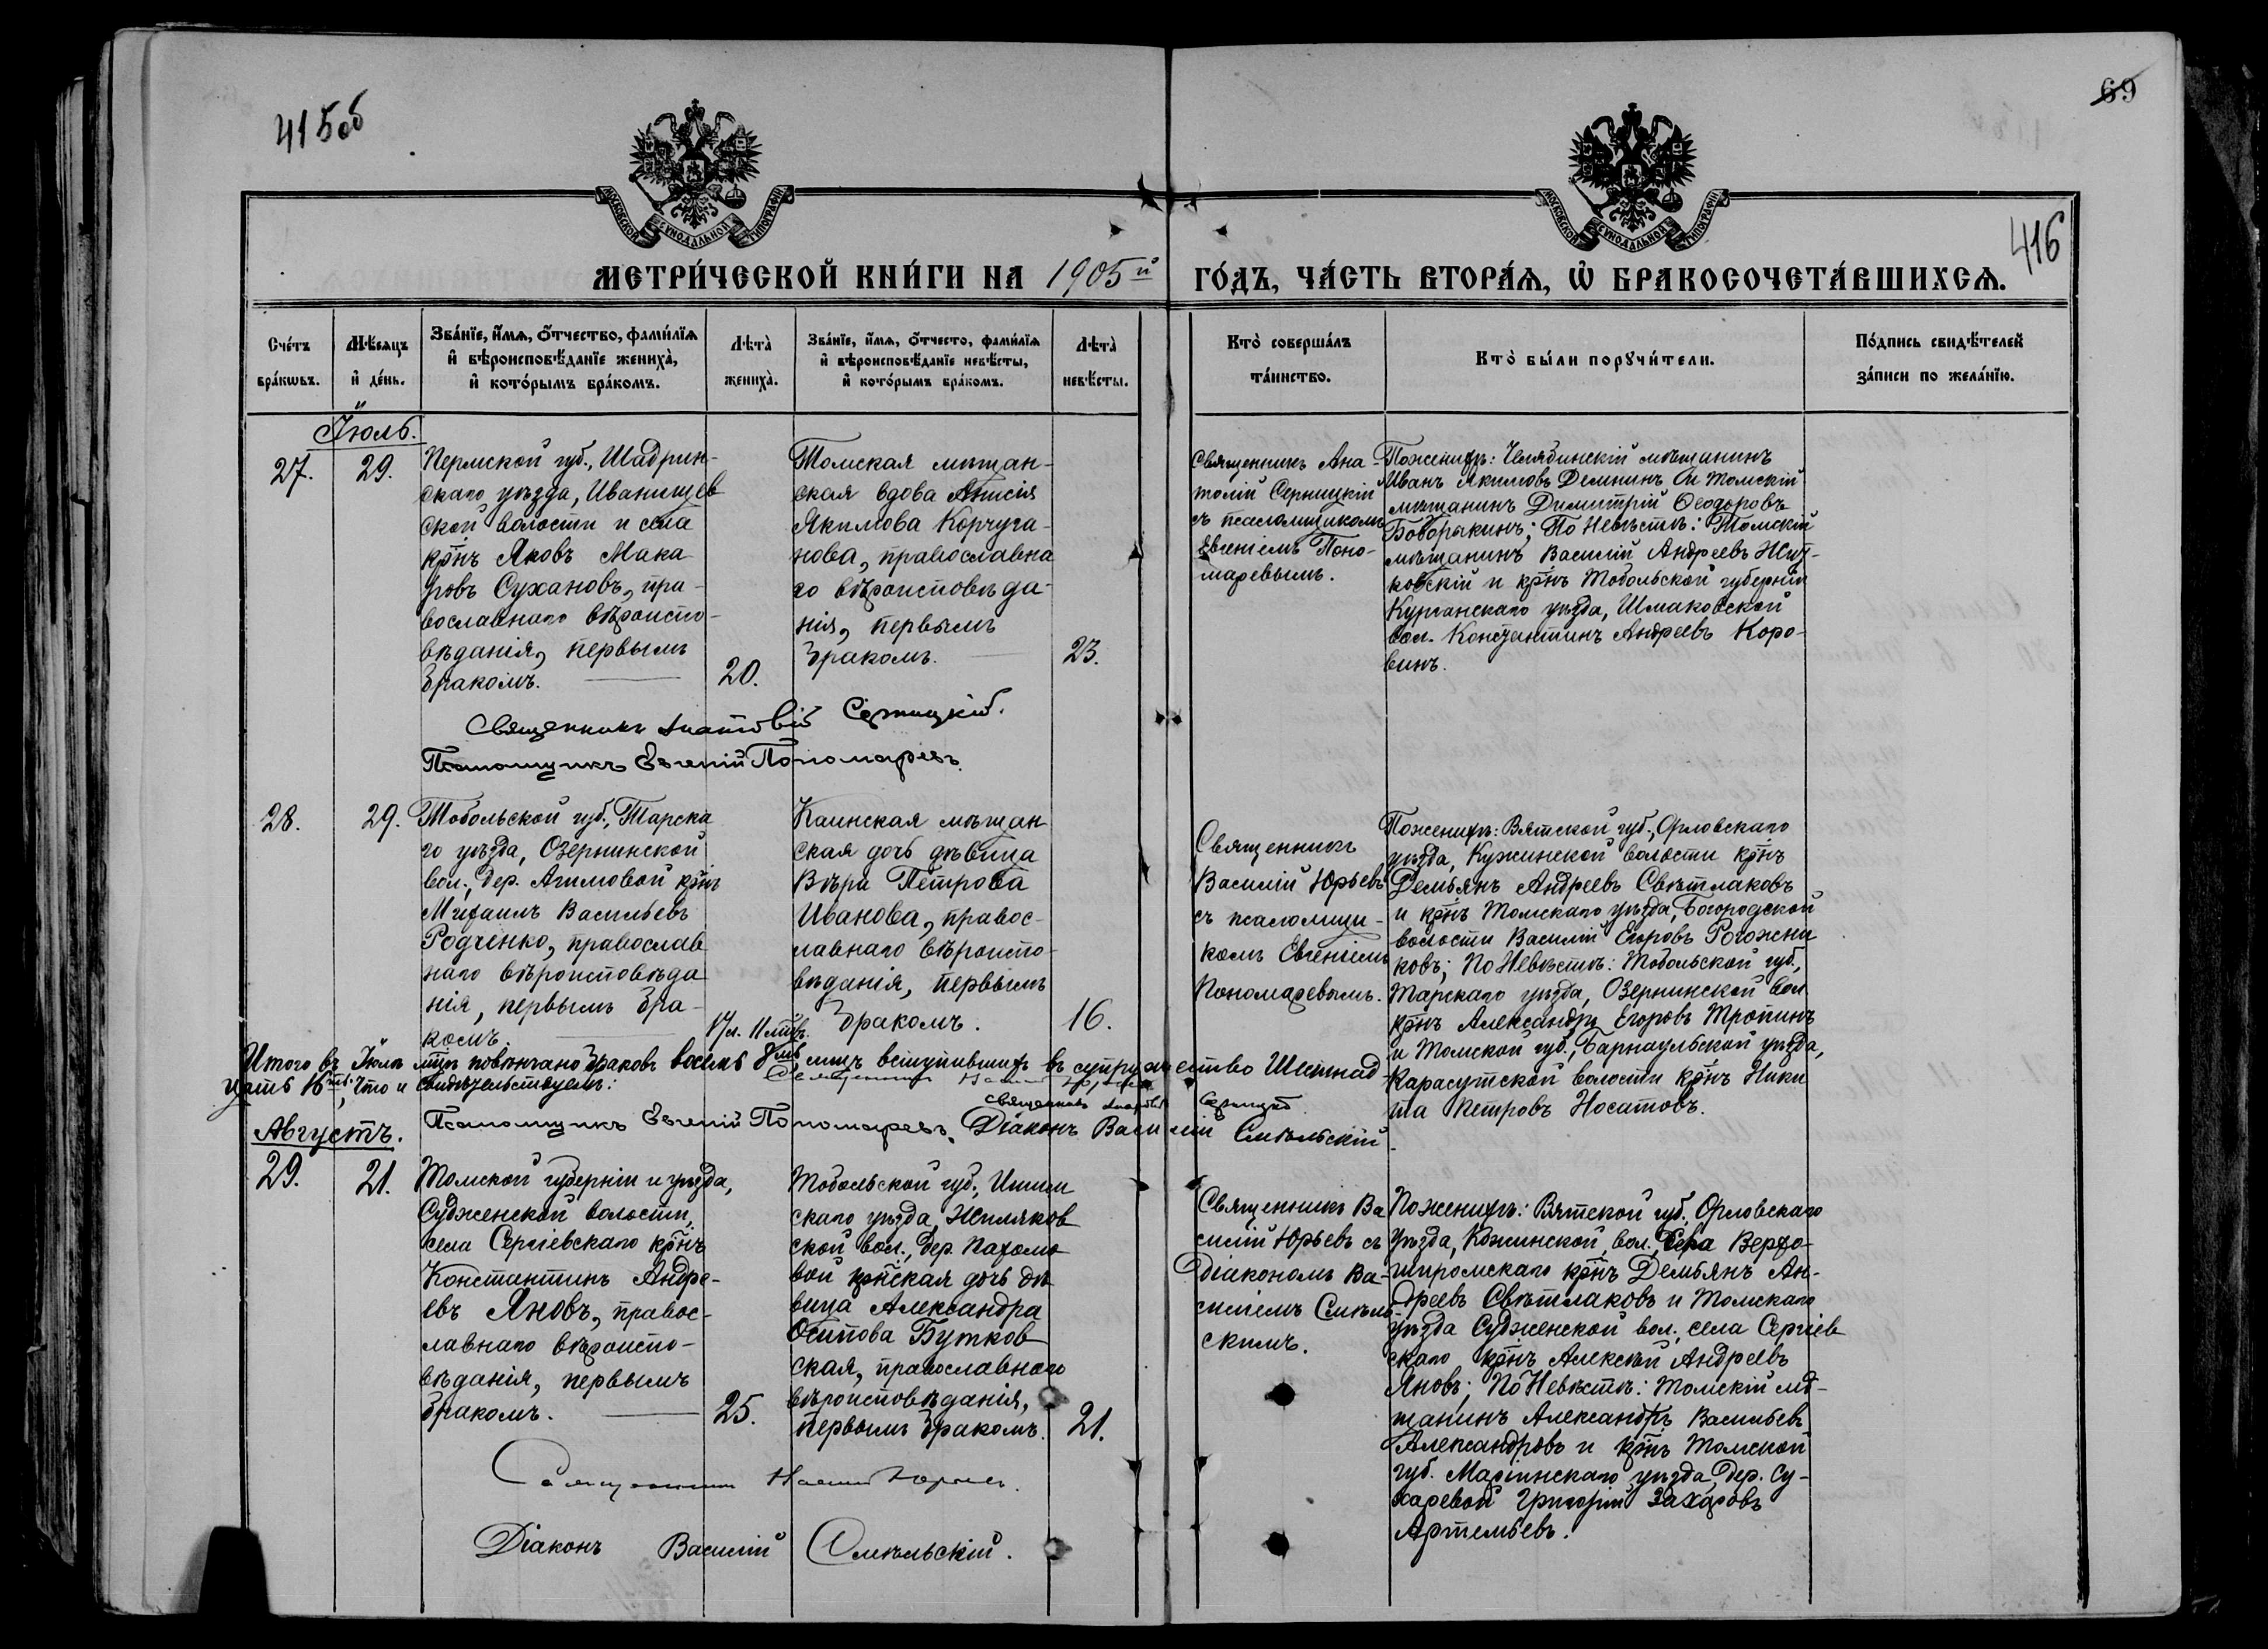 415об
69
416
МОСКОВСКОЙ СѴНОДАЛЬНОЙ ТИПОГРАФІИ
МОСКОВСКОЙ СѴНОДАЛЬНОЙ ТИПОГРАФІИ
МЕТРИ́ЧЕСКОЙ КНИ́ГИ НА 1905й ГО́ДЪ, ЧА́СТЬ ВТОРА́Ѧ, Ѡ҆ БРАКОСОЧЕТА́ВШИХСѦ.
Сче́тъ
бра́кѡвъ.
Мѣ́сѧцъ
и҆ де́нь.
Зва́нїе, и҆́мѧ, ѻ҆́тчество, фами́лїѧ
и҆ вѣроисповѣ́данїе жениха̀,
и҆ кото́рымъ бра́комъ.
Лѣта̀
жениха̀.
Зва́нїе, и҆́мѧ, ѻ҆́тчесто, фами́лїѧ
и҆ вѣроисповѣ́данїе невѣ́сты,
и҆ кото́рымъ бра́комъ.
Лѣта̀
невѣ́сты.
Кто̀ соверша́лъ
та́инство.
Кто̀ бы́ли порꙋчи́тели.
По́дпись свидѣ́телей
за́писи по жела́нїю.
Іюль.
27.
29.
Пермской губ., Шадрин-
скаго уѣзда, Иванищев
ской волости и села
крнъ Яковъ Мака
ровъ Сухановъ, пра-
вославнаго вѣроиспо-
вѣданія, первымъ
бракомъ.
20.
Томская мѣщан-
ская вдова Анисія
Якимова Корчуга-
нова, православна
го вѣроисповѣда-
нія, первымъ
бракомъ.
23.
Священникъ Ана-
толій Серницкій
съ псаломщикомъ
Евгеніемъ Поно-
маревымъ.
По женихѣ: Челябинскій мѣщанинъ
Иванъ Якимовъ Деминъ и Томскій
мѣщанинъ Димитрій Ѳеодоровъ
Боборыкинъ; По Невѣстѣ: Томскій
мѣщанинъ Василій Андреевъ Жит-
ковскій и крнъ Тобольской губерніи
Курганскаго уѣзда, Шмаковской
вол. Константинъ Андреевъ Коро-
винъ.
Священникъ Анатолій Серницкій.
Псаломщикъ Евгеній Пономаревъ.
28.
29.
Тобольской губ., Тарска
го уѣзда, Озернинской
вол., дер. Агимовой крнъ
Михаилъ Васильевъ
Родченко, православ
наго вѣроисповѣда
нія, первымъ бра-
комъ.
17 л. 11 мѣс.
Каинская мѣщан
ская дочь дѣвица
Вѣра Петрова
Иванова, правос-
лавнаго вѣроиспо-
вѣданія, первымъ
бракомъ.
16.
Священникъ
Василій Юрьевъ
съ псаломщи-
комъ Евгеніемъ
Пономаревымъ.
По женихѣ: Вятской губ., Орловскаго
уѣзда, Кужинской волости крнъ
Демьянъ Андреевъ Свѣтлаковъ
и крнъ Томскаго уѣзда, Богородской
волости Василій Егоровъ Рогожни
ковъ; По Невѣстѣ: Тобольской губ.,
Тарскаго уѣзда, Озернинской вол.
крнъ Александръ Егоровъ Тропинъ
и Томской губ., Барнаульской уѣзда,
Карасутской волости крнъ Ники
та Петровъ Носатовъ.
Итого въ Іюлѣ мцѣ повѣнчано браковъ восемь 8 лицъ вступившихъ въ супружество Шестнад-
цать 16ть, что и свидѣтельствуемъ:
Священникъ Анатолій Серницкій
Псаломщикъ Евгеній Пономаревъ. Діаконъ Василій Смѣльскій.
Августъ.
29.
21.
Томской губерніи и уѣзда,
Судженской волости,
села Сергіевскаго крнъ
Константинъ Андре-
евъ Яновъ, правос-
лавнаго вѣроиспо-
вѣданія, первымъ
бракомъ.
25.
Тобольской губ., Ишим
скаго уѣзда, Жиляков
ской вол., дер. Пахомо
вой крнская дочь дѣ
вица Александра
Осипова Бутков
ская, православнаго
вѣроисповѣданія,
первымъ бракомъ.
21.
Священникъ Ва
силій Юрьевъ съ
діакономъ Ва-
силіемъ Смѣль-
скимъ.
По женихѣ: Вятской губ., Орловскаго
уѣзда, Кожинской вол., села Верхо-
широмскаго крнъ Демьянъ Ан-
дреевъ Свѣтлаковъ и Томскаго
уѣзда Судженской вол., села Сергіев
скаго крнъ Алексѣй Андреевъ
Яновъ; По Невѣстѣ: Томскій мѣ-
щанинъ Александръ Васильевъ
Александровъ и крнъ Томской
губ. Маріинскаго уѣзда, дер. Су-
харевой Григорій Захаровъ
Артемьевъ.
Священникъ Василій Юрьевъ.
Діаконъ Василій Смѣльскій.